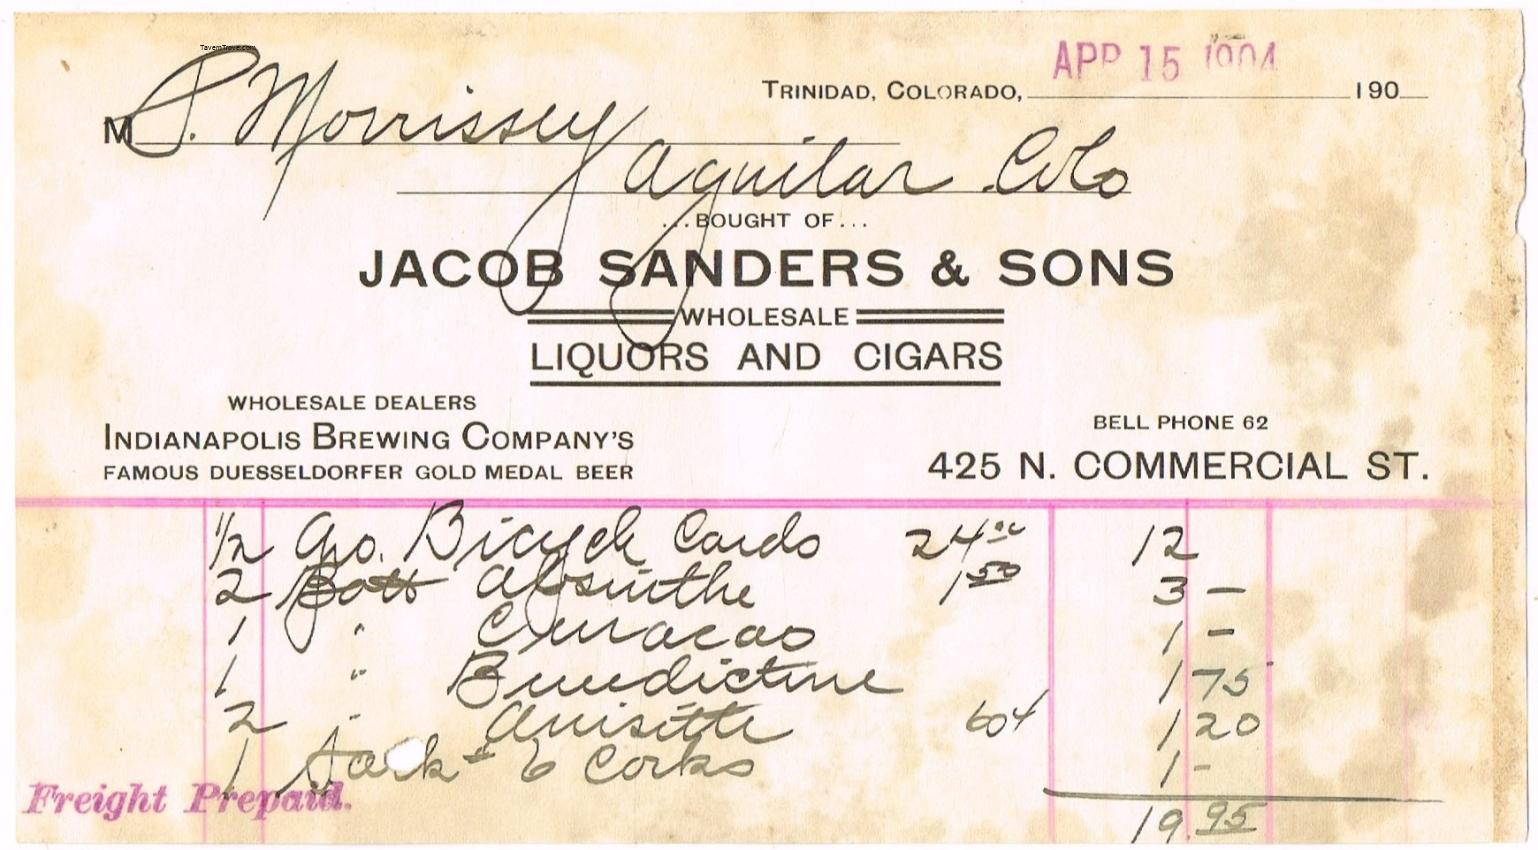 TavernTrove.com
APR 15 1904
TRINIDAD, COLORADO, 190
M P. Morrissey
Aguilar Colo
...BOUGHT OF...
JACOB SANDERS & SONS
WHOLESALE
LIQUORS AND CIGARS
WHOLESALE DEALERS
INDIANAPOLIS BREWING COMPANY'S
FAMOUS DUESSELDORFER GOLD MEDAL BEER
BELL PHONE 62
425 N. COMMERCIAL ST.
1/2 Gro. Bicycle Cards 24.00 12
2 Bott Absinthe 1.50 3 -
1 " Curacao 1 -
1 " Benedictine 1 75
2 " Anisette 60¢ 1 20
1 Sack # 6 Corks 1 -
Freight Prepaid.
19.95